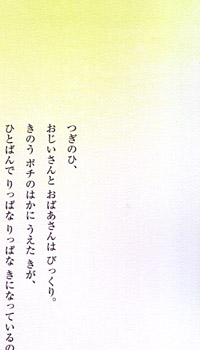 つぎのひ、
おじいさんと おばあさんは びっくり。
きのう ポチのはかに うえた きが、
ひとばんで りっぱな りっぱな きになっているの